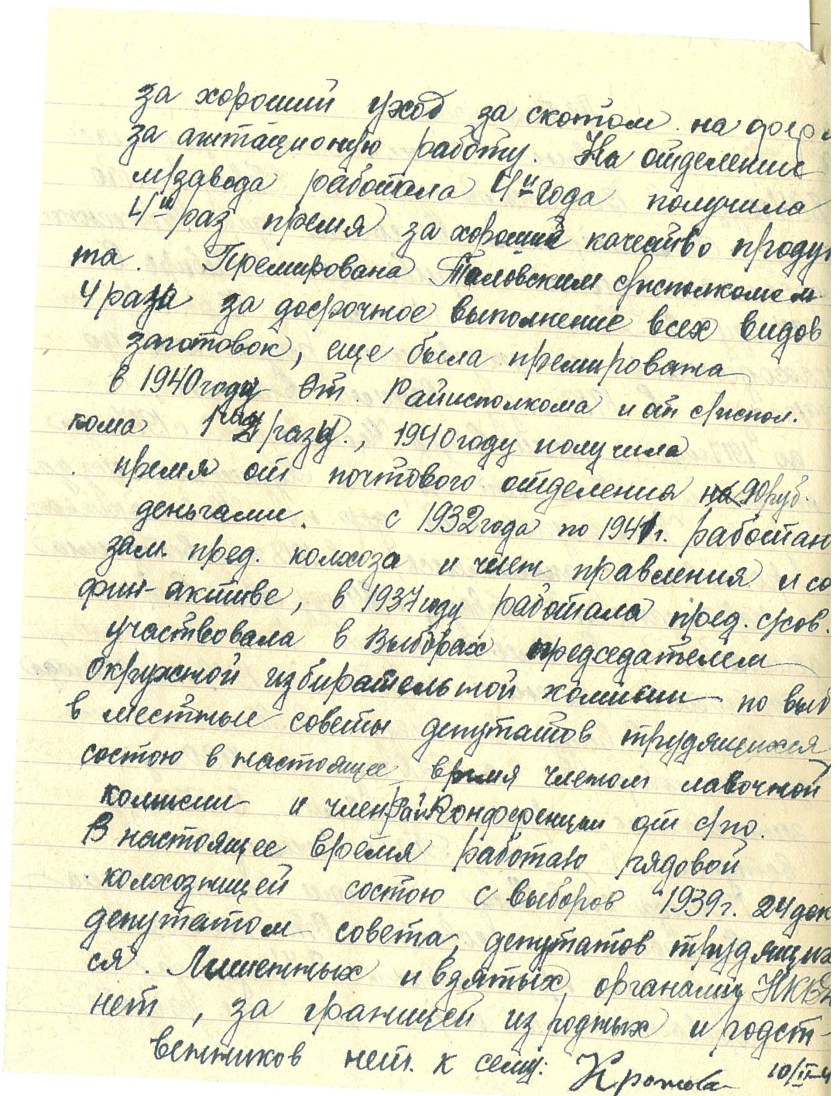 за хороший уход за скотом. на
за агитационую работу. На отделение
м/завода работала 4и года получила
4и раз премя за хороший качество проду
та. Премирована Таловским с/исполкомом
4 раза за досрочное выполнение всех видов
заготовок, еще была премирована
в 1940 году От. Райисполкома и от с/испол.
кома раза., 1940 году получила
премя от почтового отделения 90 руб.
деньгами. с 1932 года по 1941 г. работаю
зам. пред. колхоза и член правления и со
фин-активе, в 1937 году работала пред. с/сов.
участвовала в Выборах председателем
Окружной избирательной комисии по выб
в местные советы депутатов трудящихся
состою в настоящее время членом лавочной
комисии и член Рай Конференции от с/по.
В настоящее время работаю рядовой
колхозницей состою с выборов 1939 г. 24 дек
депутатом совета депутатов трудящих
ся. Лишенных и взятых органами НКВД
нет, за границей из родных и родст-
венников нет. к сему: Кротова 10/II-4